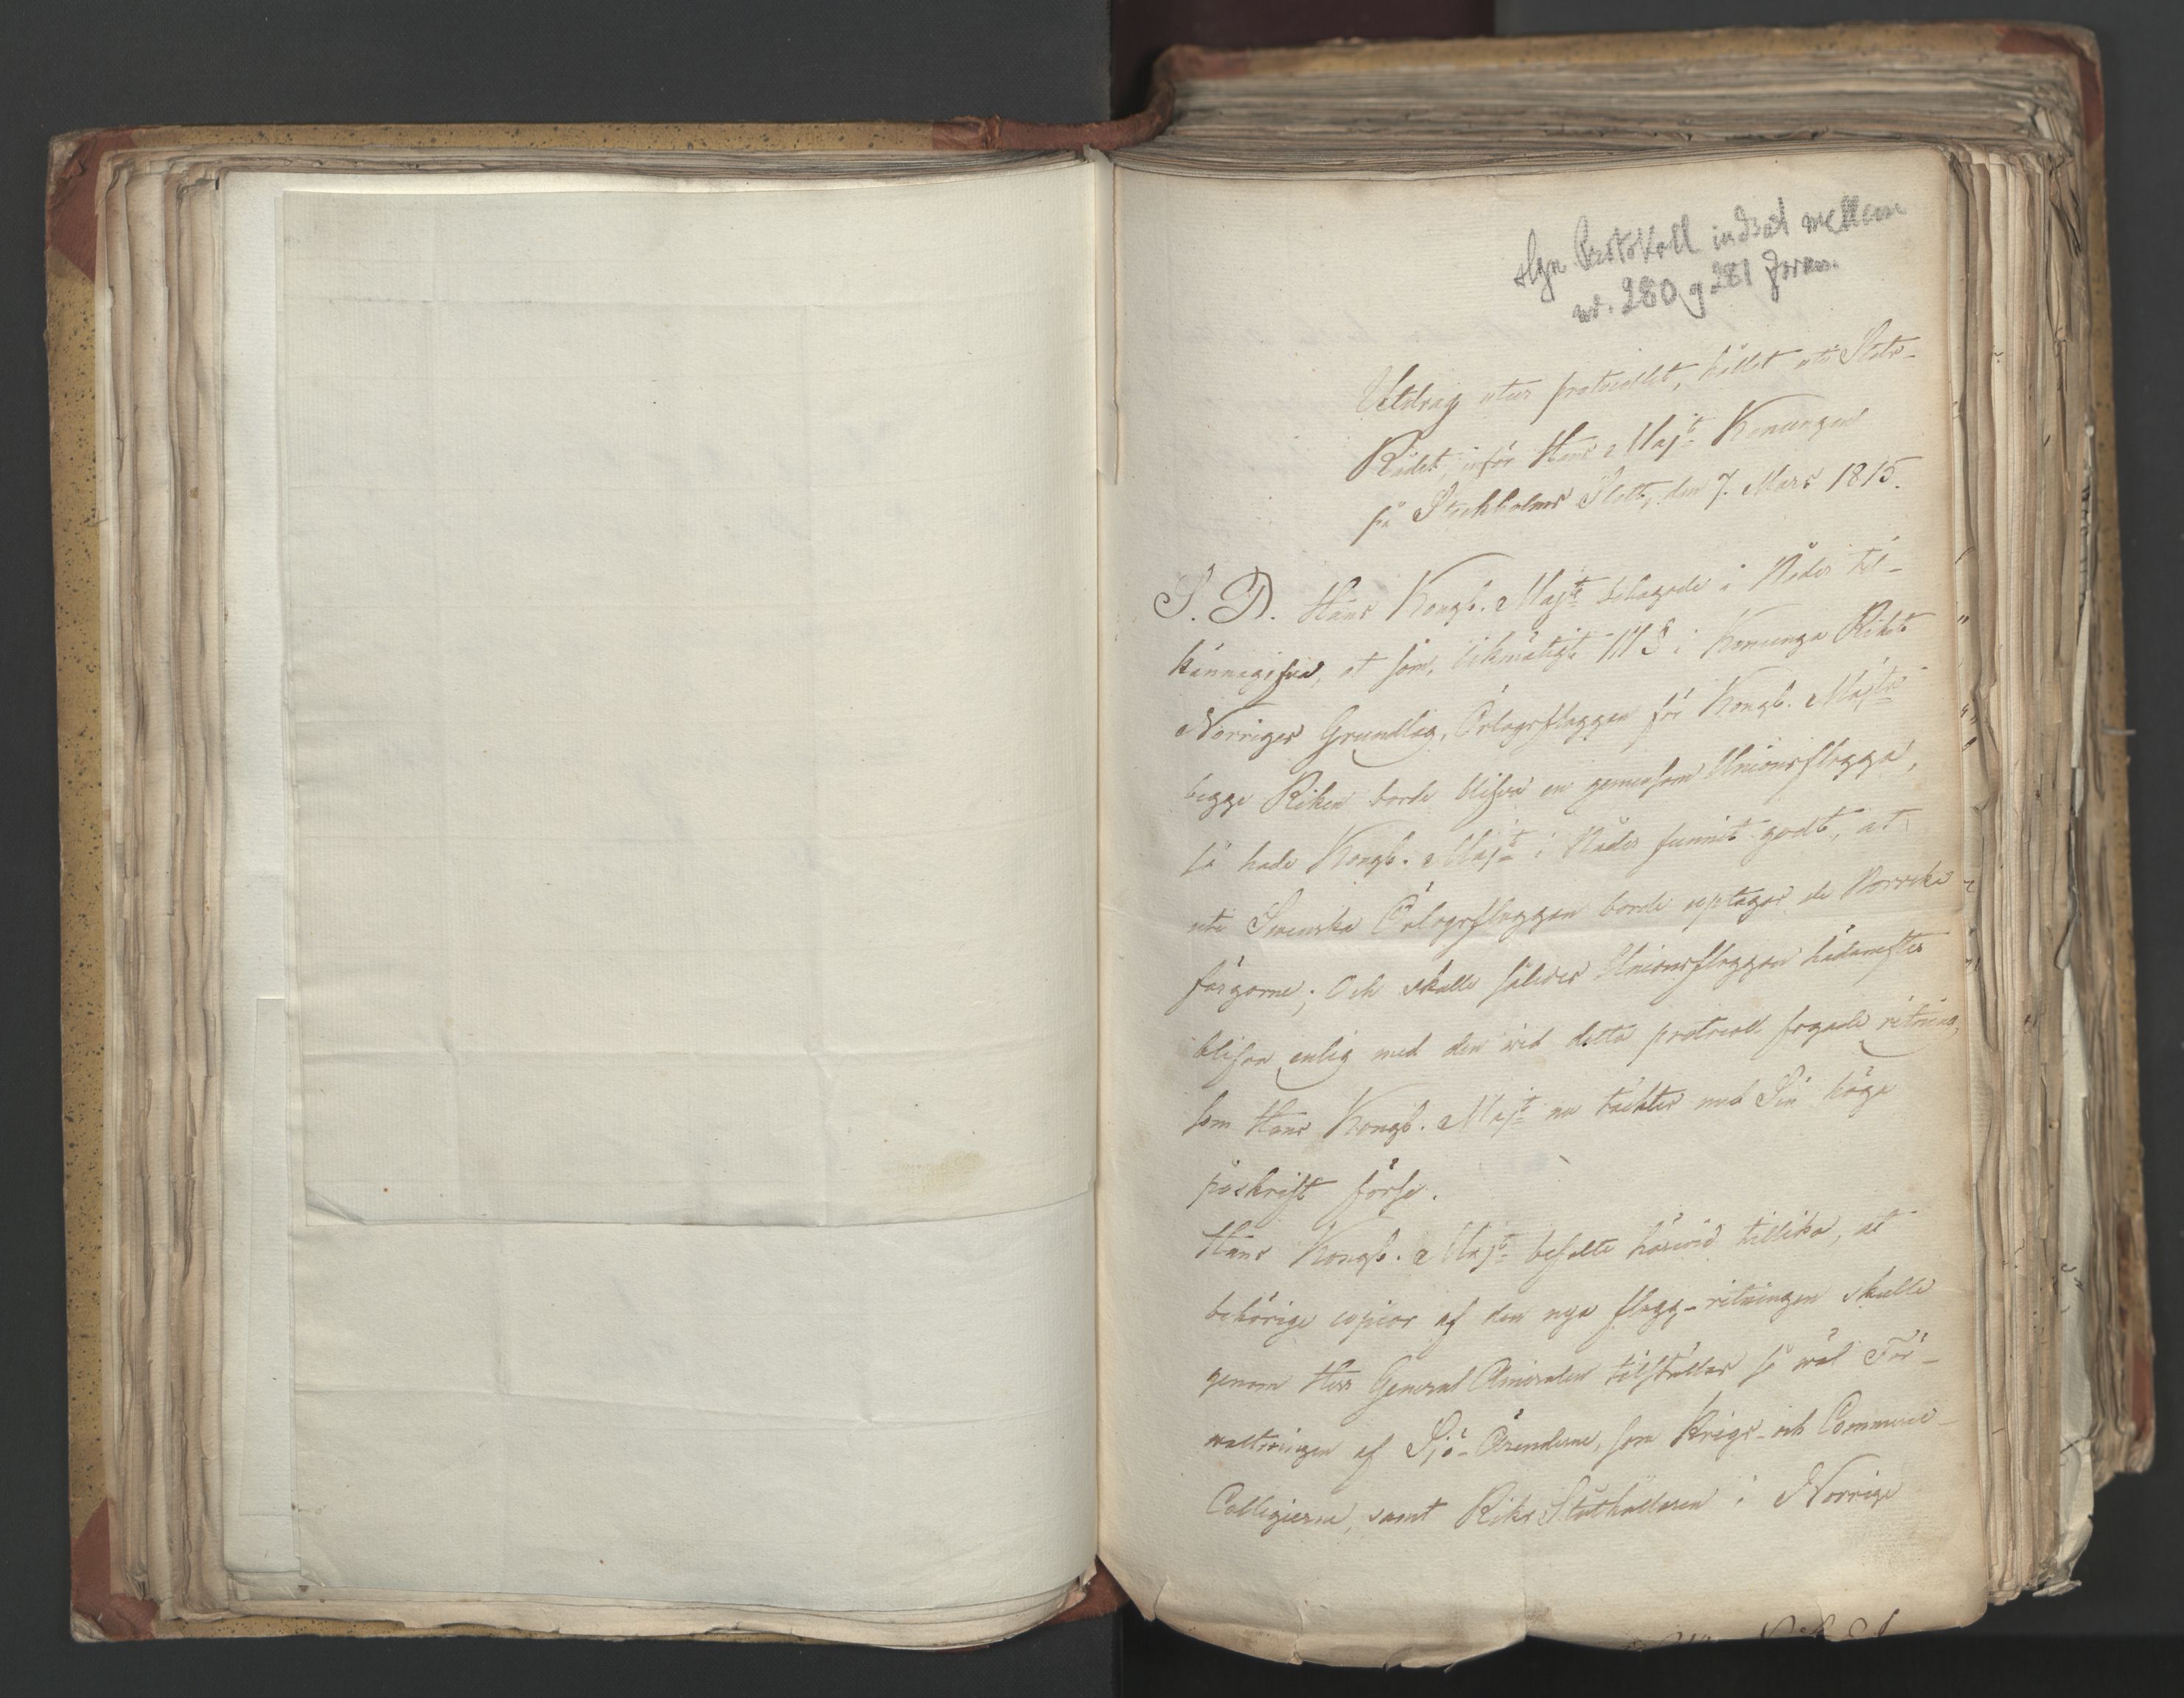 Protokoll indsat mellem
nr. 280 og 281 foran.
Utdrag utur protocollet, hållet uti Stats-
Rådet, inför Hans Majt Konungen
på Stockholms Slott, den 7. Mars 1815.
S. D. Hans Kongl. Majt behagade i Nåder til-
kännagifva, at som, likmätigt 111 § i Konunga Rikets
Norriges Grundlag, Örlogsflaggan för Kongl. Majts
begge Riken borde blifva en gemensam Unionsflagga,
så hade Kongl. Majt i Nåder funnit godt, at
uti Svenska Örlogsflaggan borde uptagas de Norrska
färgorne; Och skulle således Unionsflaggan hädanefter
blifva enlig med den vid detta protocoll fogade ritning,
som Hans Kongl. Majt nu täcktes med Sin höga
påskrift förse.
Hans Kongl. Majt befalte härvid tillika, at
behörige copior af den nya flagg-ritningen skulle
genom Herr General Amiralen tillställas så väl För-
valtningen af Sjö-Ärenderne, som Krigs- och Commerce-
Collegierne, samt Riks Ståthållaren i Norrige